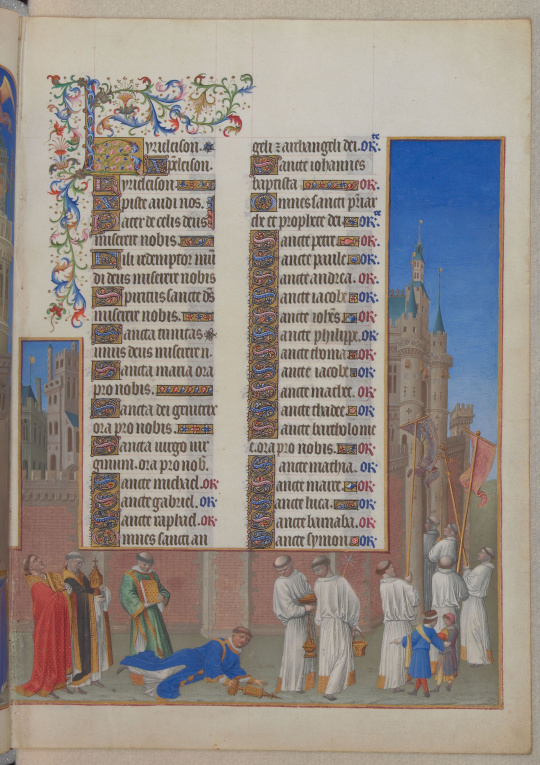 Kyrieleison.
Xpeleison.
Kyrieleison
Xpiste audi nos.
Pater de celis deus
miserere nobis.
Fili redemptor mū
di deus miserere nobis
Spiritus sancte ds̄
miserere nobis.
Sancta trinitas
unus deus miserere n.
Sancta maria ora
pro nobis.
Sancta dei genitrix
ora pro nobis.
Sancta virgo vir
ginum. ora pro nob.
Sancte michael. OR
Sancte gabriel. OR
Sancte raphael. OR
Omnes sancti an
geli ⁊ archangeli dei. OR
Sancte iohannes
baptista OR
Omnes sancti p̄riar
che et prophete dei OR
Sancte petre OR
Sancte paule OR
Sancte andrea. OR
Sancte iacobe OR
Sancte ioh̄es OR
Sancte philippe. OR
Sancte thoma OR
Sancte iacobe OR
Sancte mathee. OR
Sancte thadee. OR
Sancte bartholome
e. ora pro nobis. OR
Sancte mathia. OR
Sancte marce OR
Sancte luca. OR
Sancte barnaba. OR
Sancte symon OR